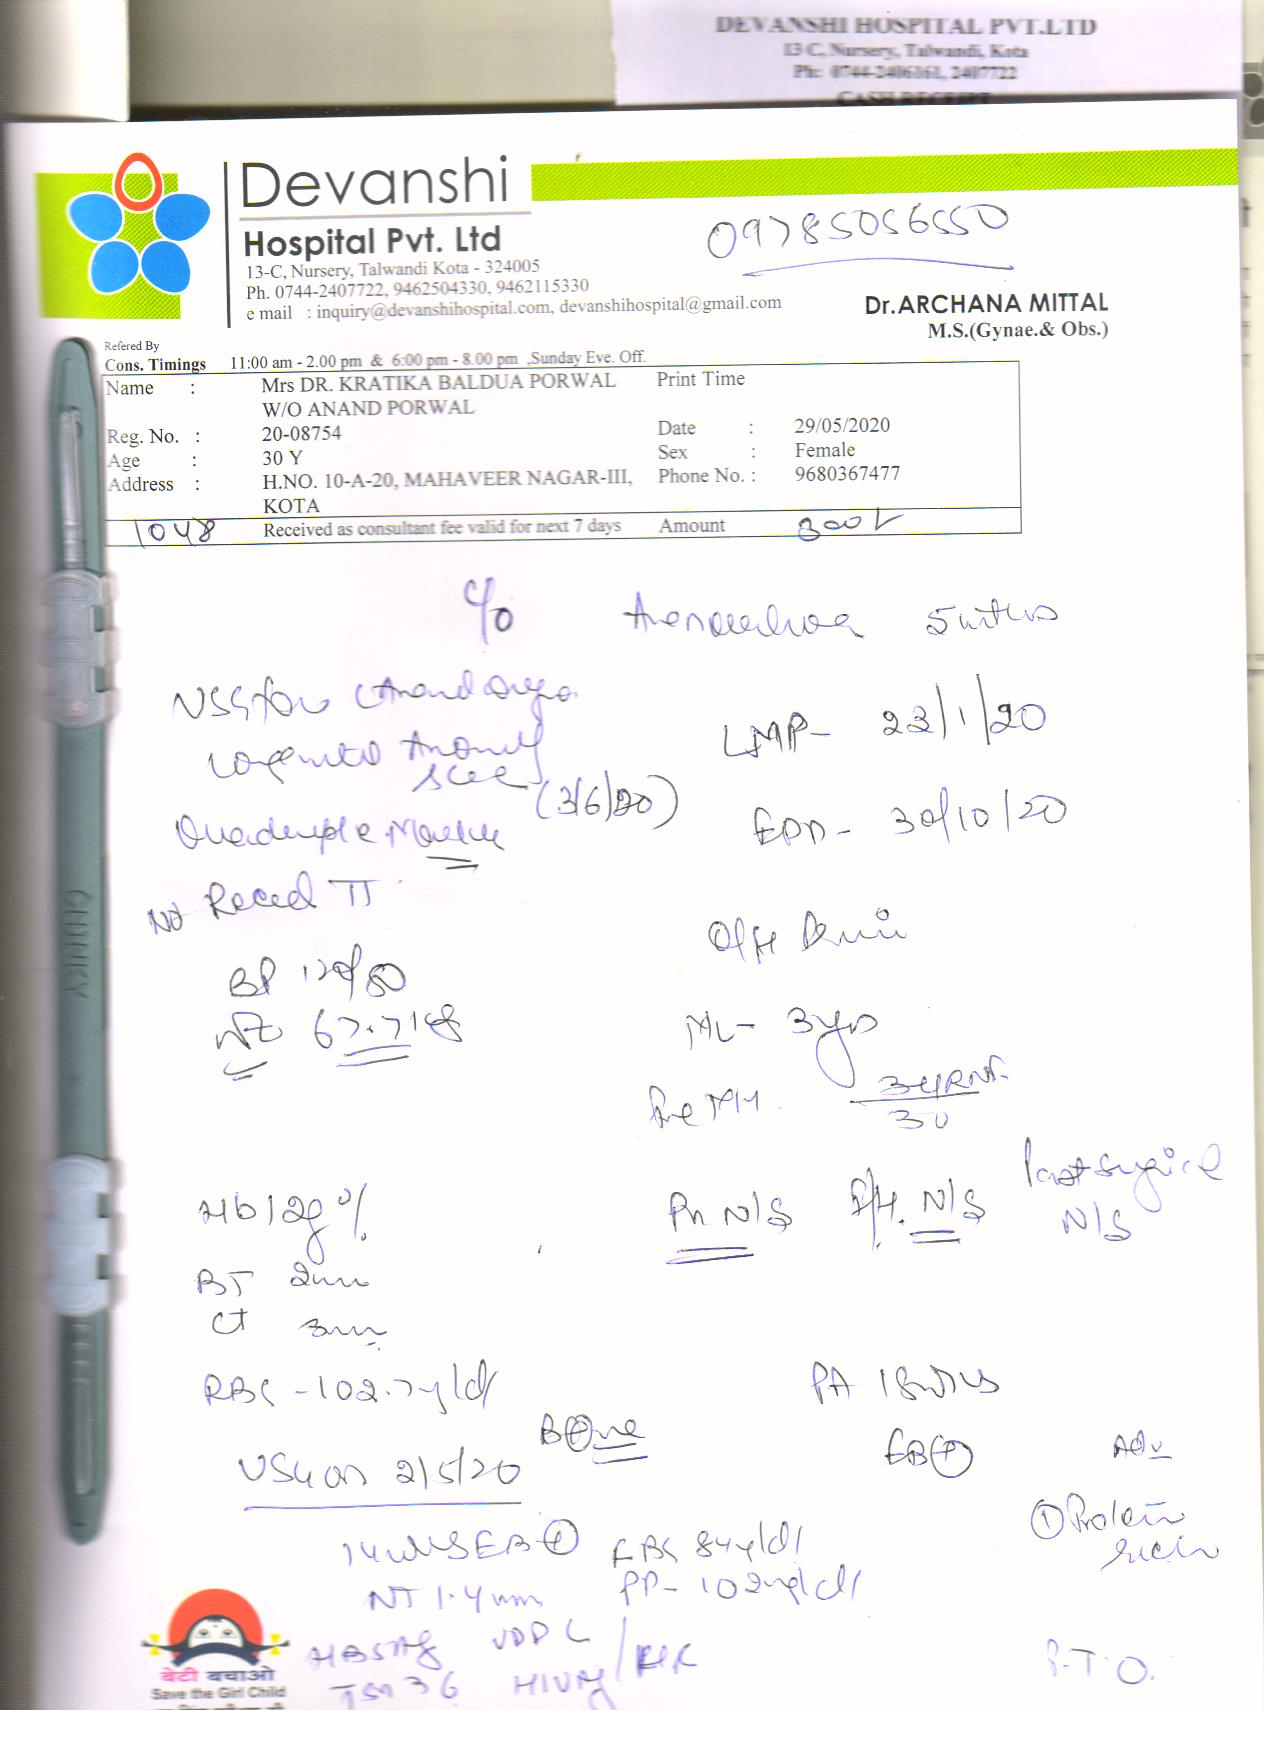 DEVANSHI HOSPITAL PVT.LTD
13-C, Nursery, Talwandi, Kota
Ph: 0744-2406161, 2407722
CASH RECEIPT
Devanshi
Hospital Pvt. Ltd
13-C, Nursery, Talwandi Kota - 324005
Ph. 0744-2407722, 9462504330, 9462115330
e mail : inquiry@devanshihospital.com, devanshihospital@gmail.com
09785056550
Dr.ARCHANA MITTAL
M.S.(Gynae.& Obs.)
Refered By
Cons. Timings 11:00 am - 2.00 pm & 6:00 pm - 8.00 pm ,Sunday Eve. Off.
Name : Mrs DR. KRATIKA BALDUA PORWAL Print Time
W/O ANAND PORWAL
Reg. No. : 20-08754 Date : 29/05/2020
Age : 30 Y Sex : Female
Address : H.NO. 10-A-20, MAHAVEER NAGAR-III, Phone No. : 9680367477
KOTA
1048 Received as consultant fee valid for next 7 days Amount 300/-
c/o 5
USG for
LMP- 23/1/20
(3/6/20)
Quadruple Marker
EDD- 30/10/20
Not Recd TT
BP 120/80
Wt 67.7 kg
ML- 3 yrs
30
Hb 12g%
P/H N/S F/H. N/S Past surgical
N/S
BT 2
CT 3
RBS - 102.7 g/dl
PA 18 wks
B⊕ve
USG on 2/5/20
Adv
14 wks ⊕ FBS 84 g/dl
① Protein
NT 1.4 mm PP- 102 mg/dl
HBsAg
HIV
P.T.O.
GLONKY
बेटी बचाओ
Save the Girl Child